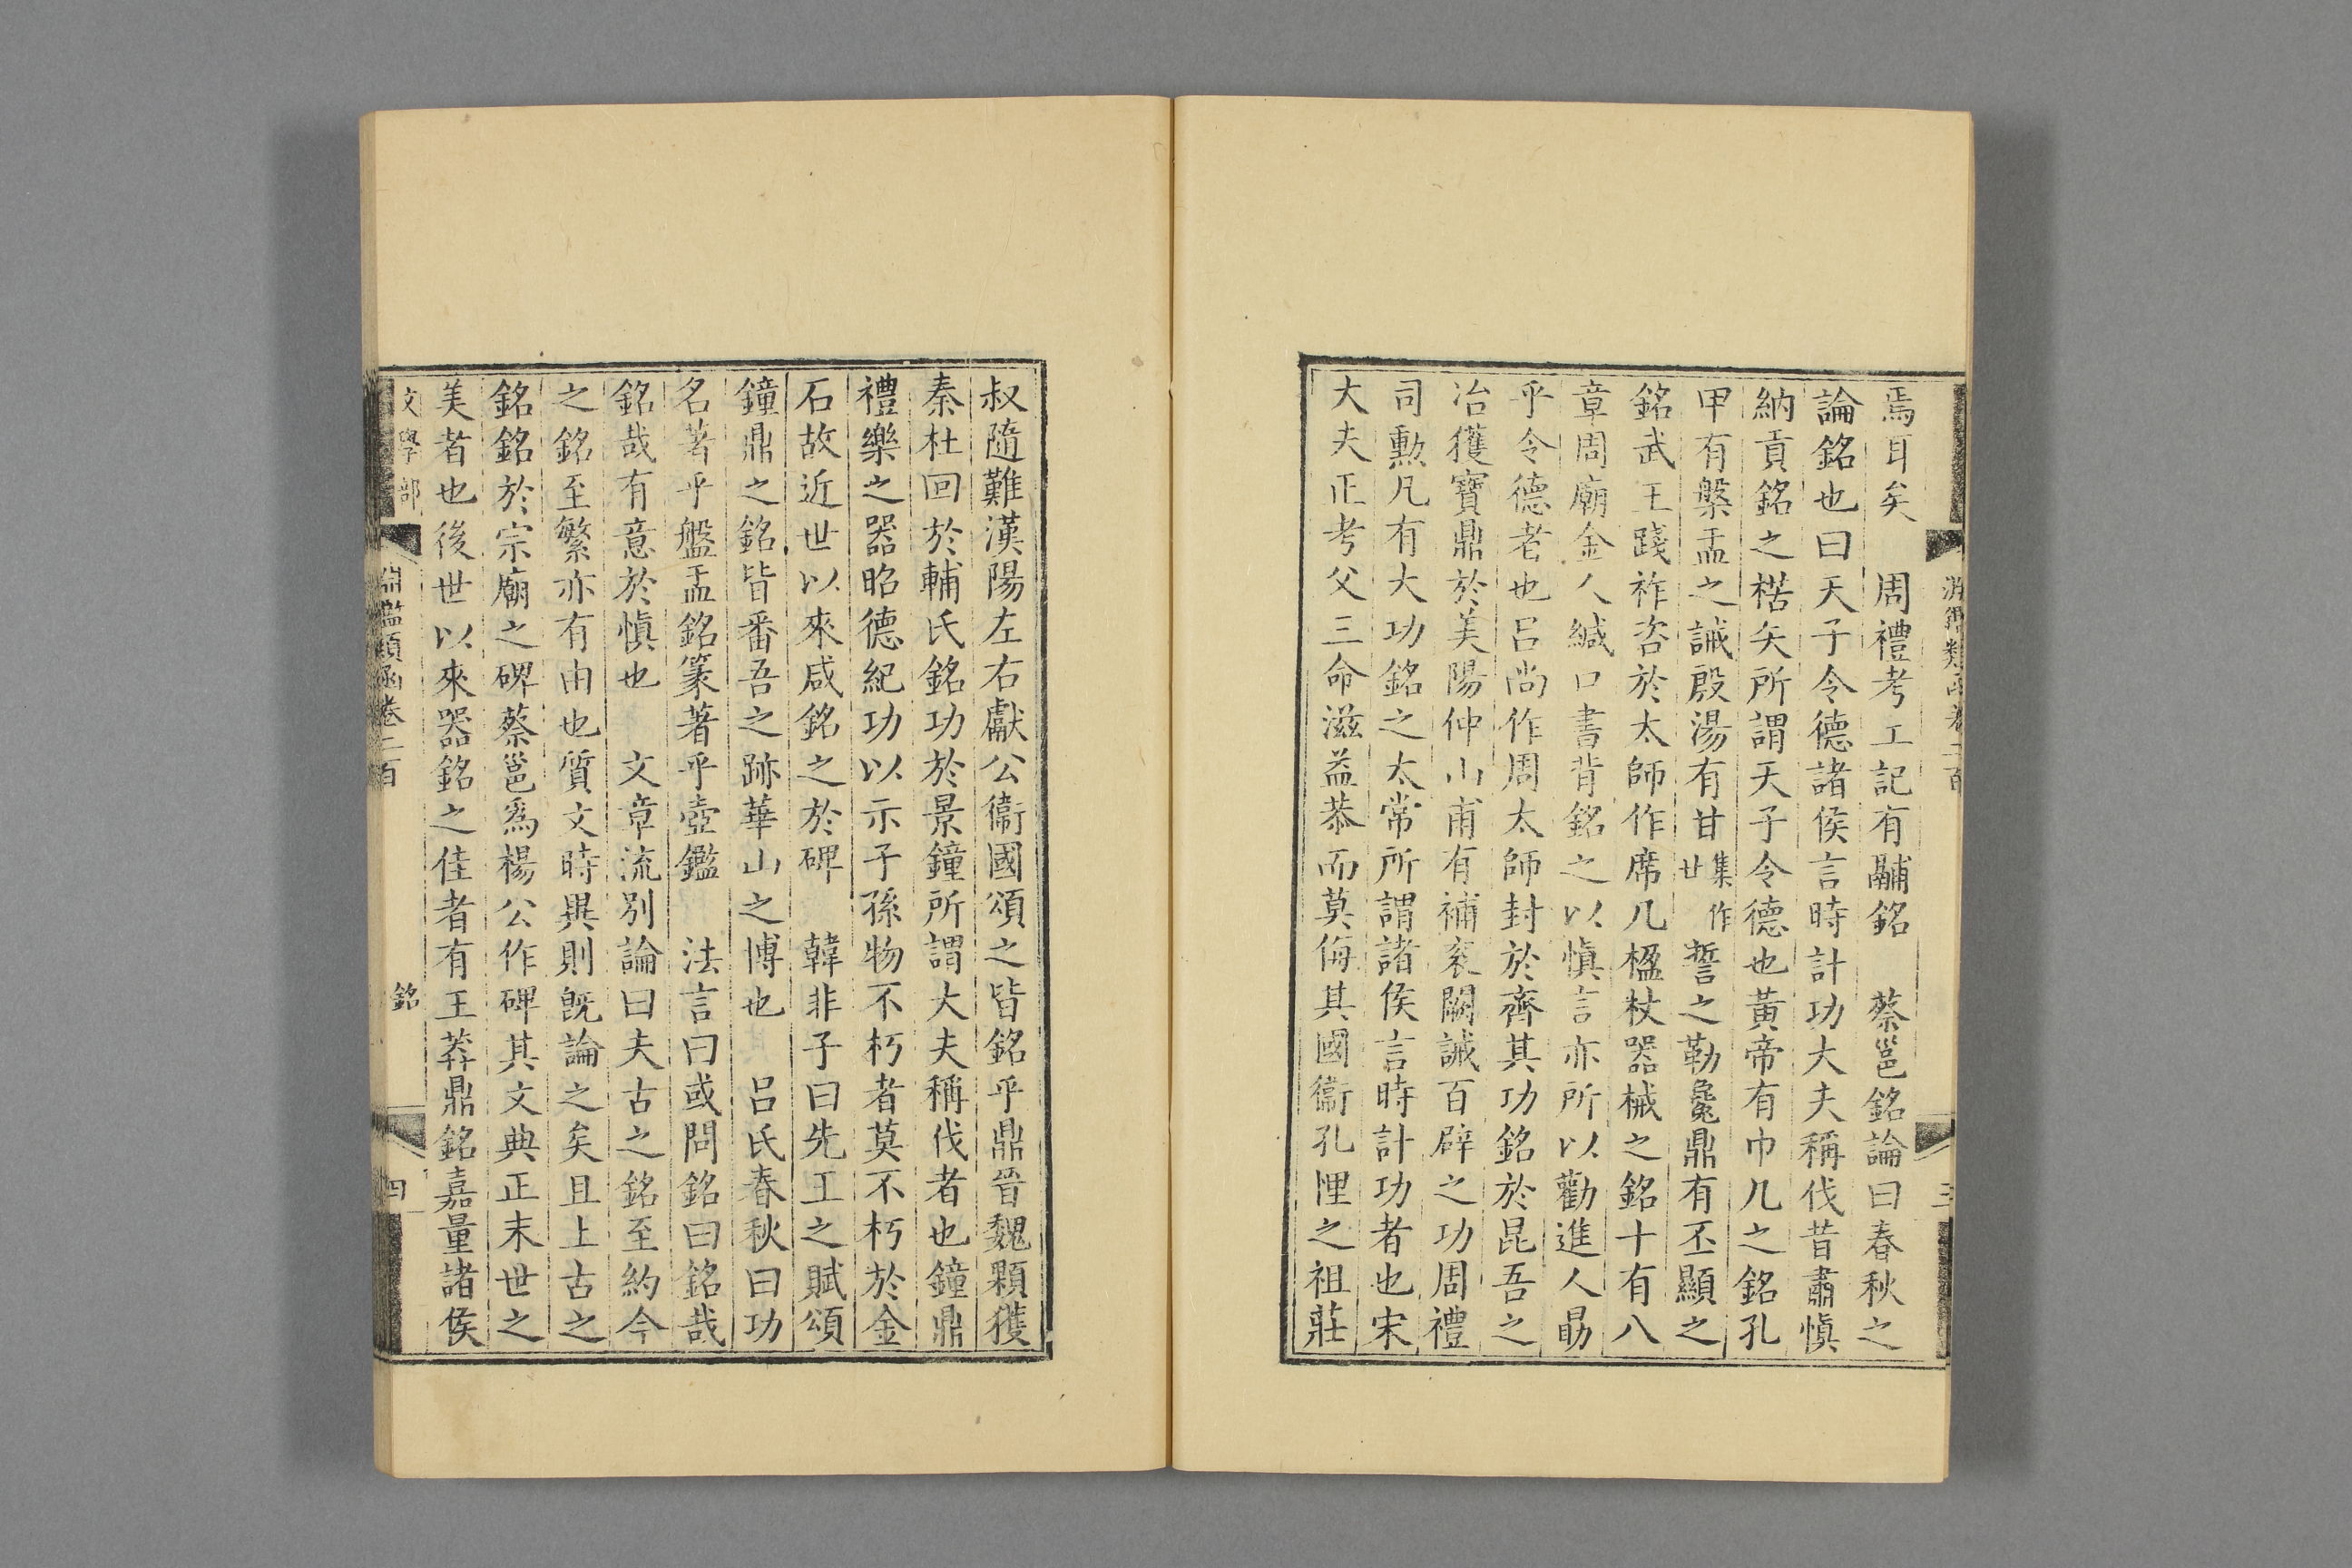 淵鑑類函卷二百
三
焉耳矣　周禮考工記有鬴銘　蔡邕銘論曰春秋之
論銘也曰天子令德諸侯言時計功大夫稱伐昔肅慎
納貢銘之楛矢所謂天子令德也黃帝有巾几之銘孔
甲有槃盂之誡殷湯有甘集作丗誓之勒毚鼎有丕顯之
銘武王踐祚咨於太師作席几楹杖器械之銘十有八
章周廟金人緘口書背銘之以慎言亦所以勸進人勗
乎令德者也呂尚作周太師封於齊其功銘於昆吾之
冶獲寶鼎於美陽仲山甫有補袞闕誡百辟之功周禮
司勳凡有大功銘之太常所謂諸侯言時計功者也宋
大夫正考父三命滋益恭而莫侮其國衞孔悝之祖莊
叔隨難漢陽左右獻公衞國頌之皆銘乎鼎晉魏顆獲
秦杜回於輔氏銘功於景鐘所謂大夫稱伐者也鐘鼎
禮樂之器昭德紀功以示子孫物不朽者莫不朽於金
石故近世以來咸銘之於碑　韓非子曰先王之賦頌
鐘鼎之銘皆番吾之跡華山之博也　呂氏春秋曰功
名著乎盤盂銘篆著乎壺鑑　法言曰或問銘曰銘哉
銘哉有意於慎也　文章流別論曰夫古之銘至約今
之銘至繁亦有由也質文時異則旣論之矣且上古之
銘銘於宗廟之碑蔡邕爲楊公作碑其文典正末世之
美者也後世以來器銘之佳者有王莽鼎銘嘉量諸侯
文學部
淵鑑類函卷二百
銘
四